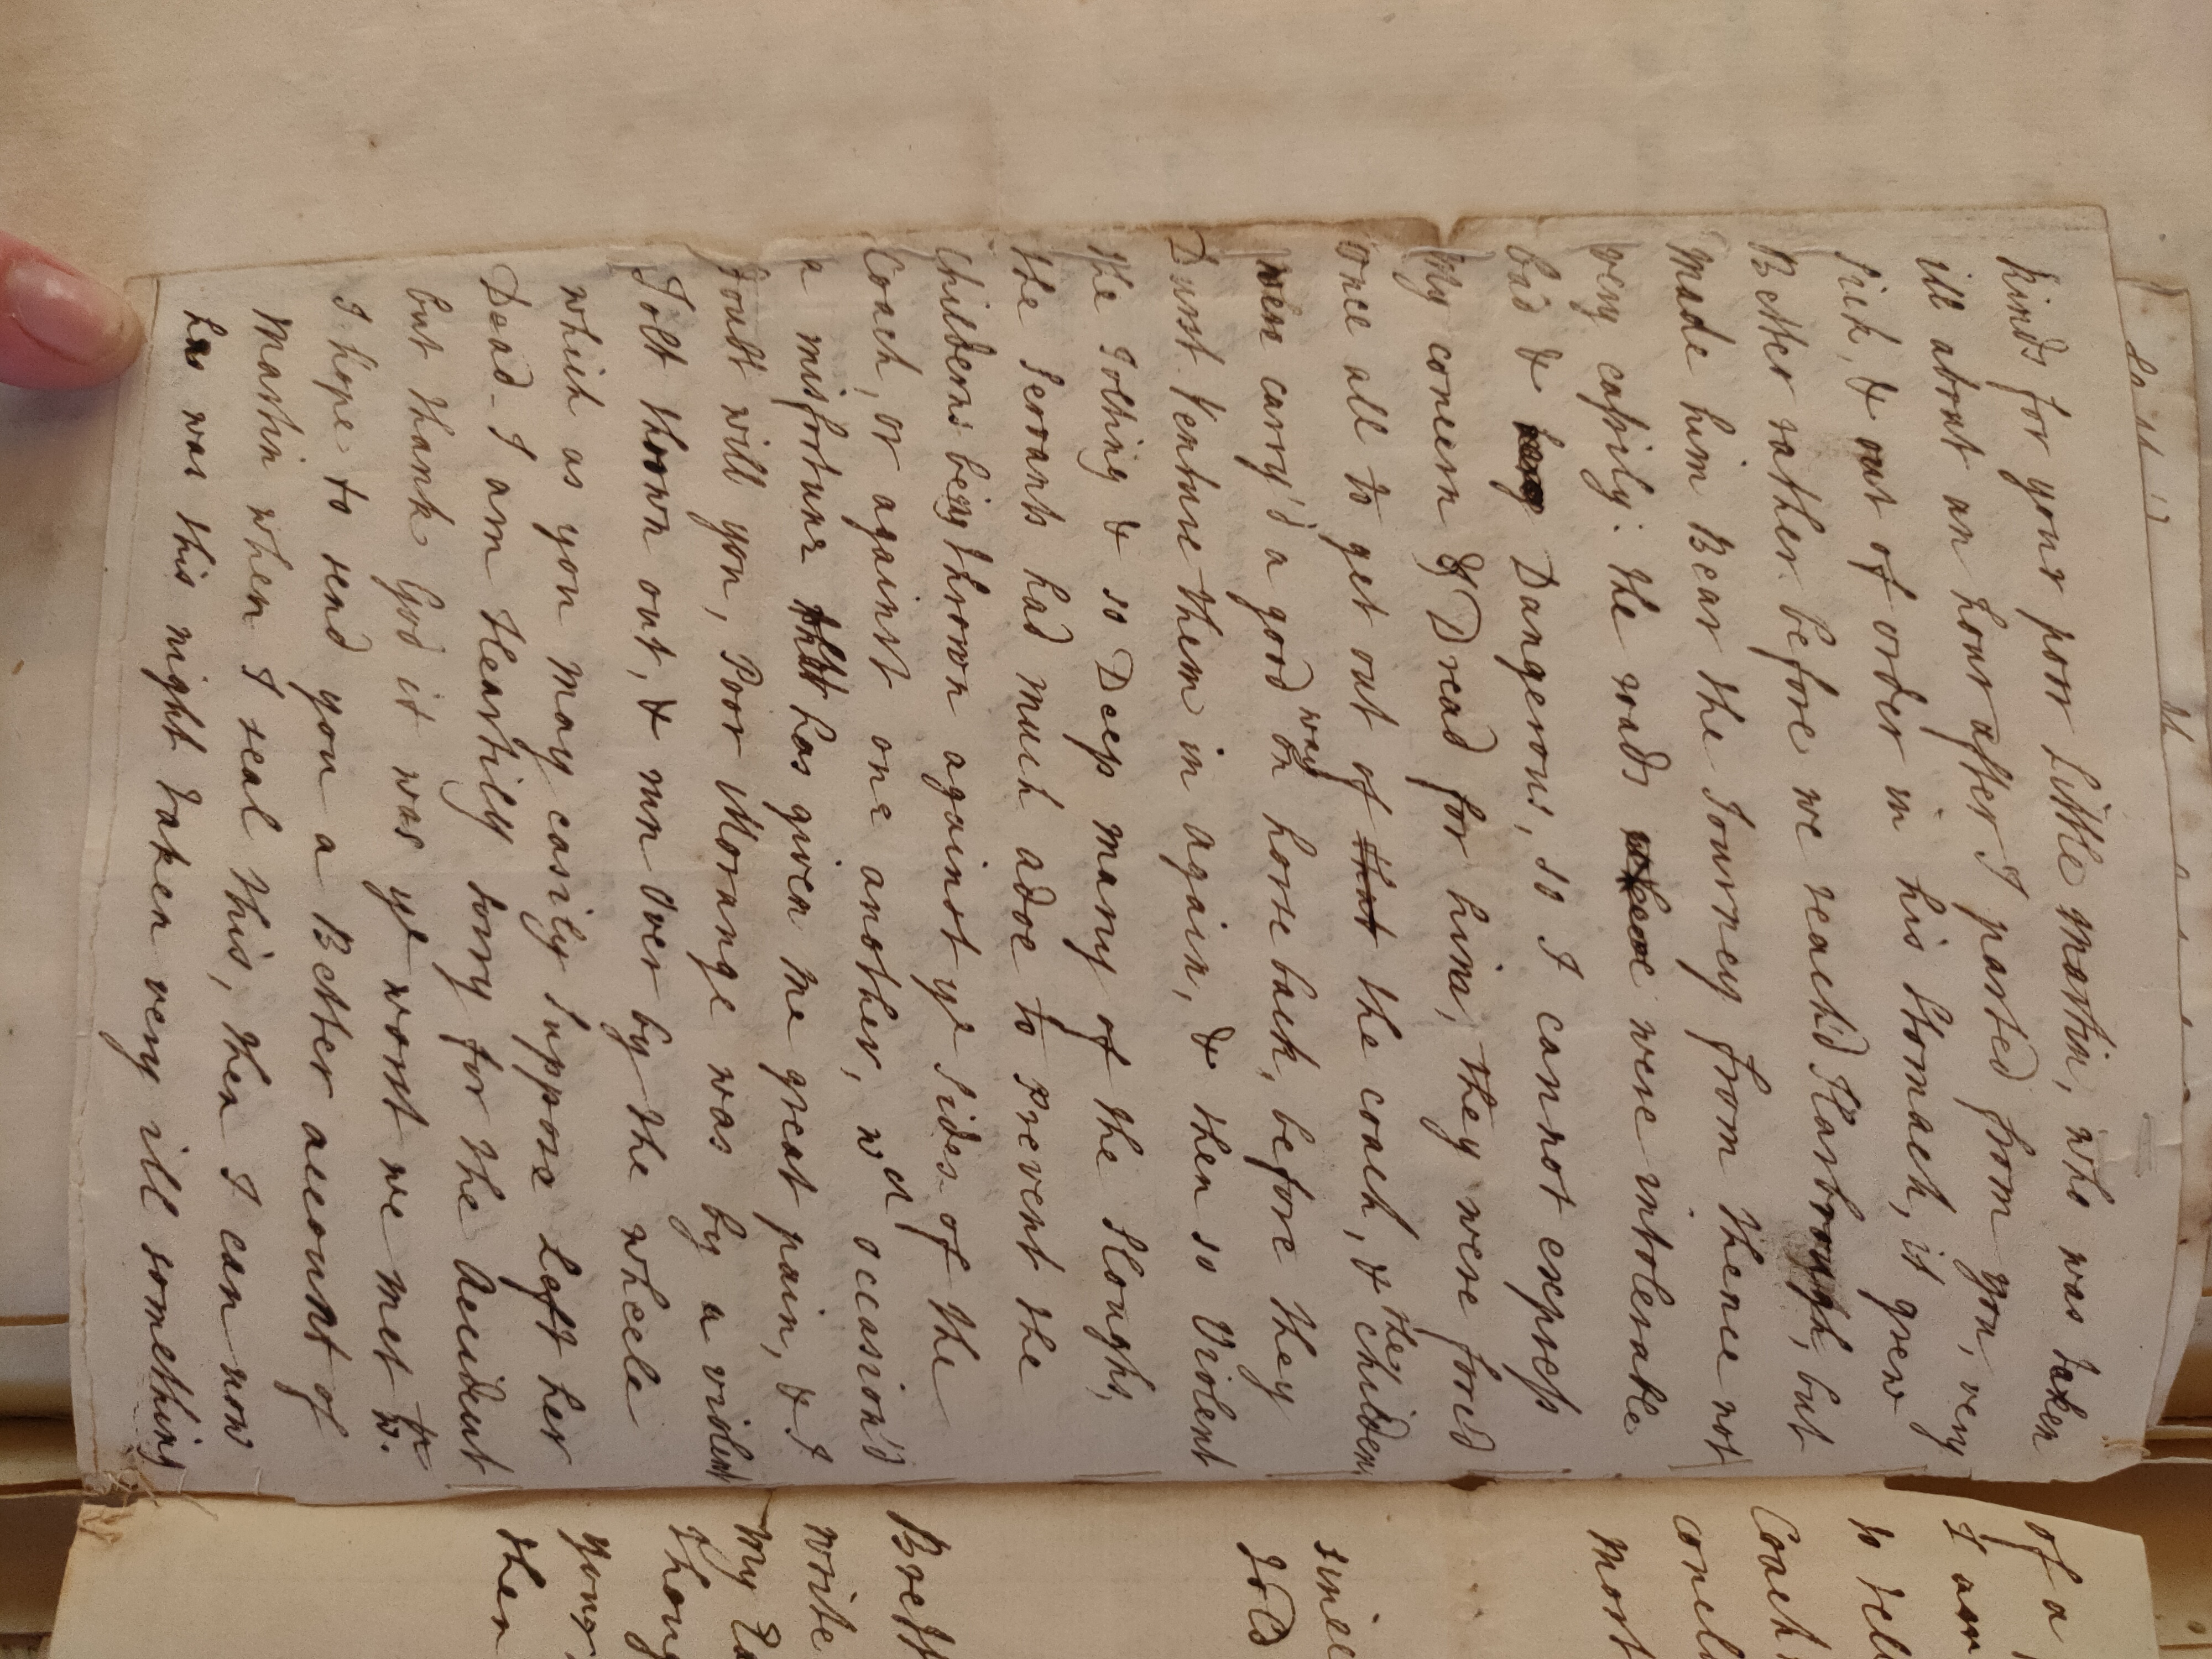 kinds for your poor little martin, who was taken
ill about an hour after I parted from you, very
sick, & out of order in his Stomach, it grew
Better rather before we reach'd Harbrough, but
made him Bear the Journey from thence not
very eassily: the roads were intolerable
bad & Dangerous, so I cannot express
my concern & Dread for him, they were forc'd
once all to get out of that the coach, & the childern
were carry'd a good way on horse back, before they
Durst Venture them in again, & then so Violent
the Jolting & so Deep many of the Sloughs,
the Servants had much adoe to Prevent the
Childerns being thrown against ye sides of the
Coach, or against one another, wch occasion'd
a misfortune that has given me great pain, & I
doubt will you, Poor Morange was by a violent
Jolt thrown out, & run Over by the wheele
which as you may easily suppose Left her
Dead - I am Heartily sorry for the Accident
but thank God it was ye worst we met wth.
I hope to send you a Better account of
Martin when I seal this, then I can now
has was this night taken very ill something
of a
I am
to tell
Coach
most
since
told
Brett
write
my
your
then